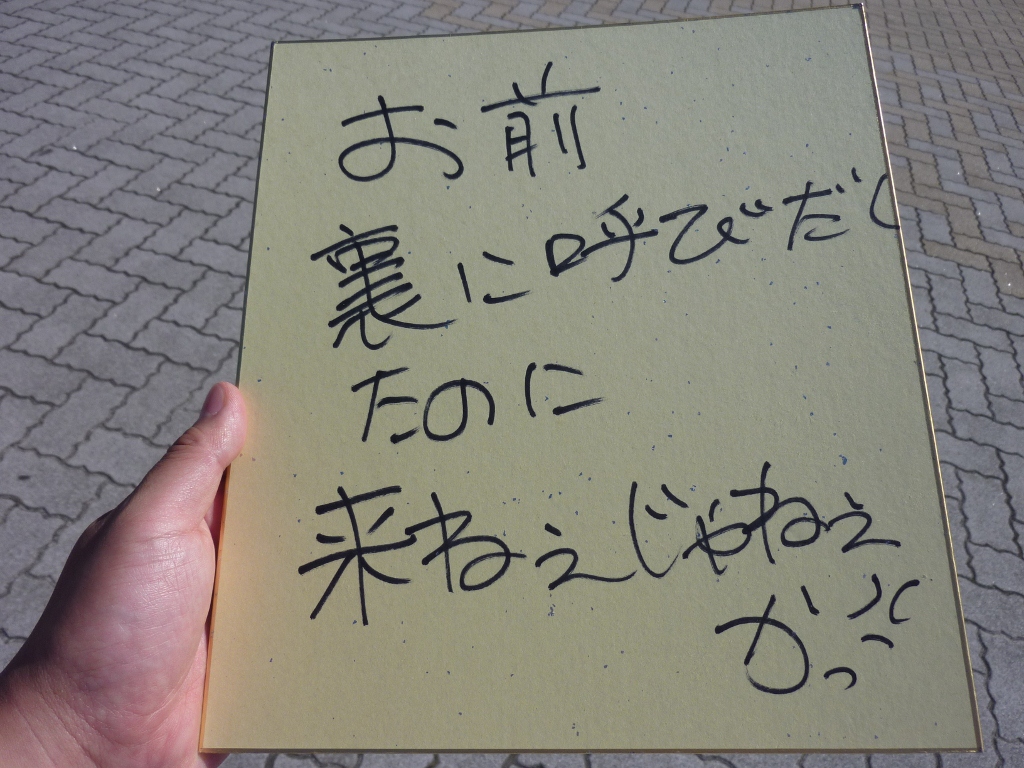 お前
裏に呼びだし
たのに
来ねぇじゃねぇ
かっ💢